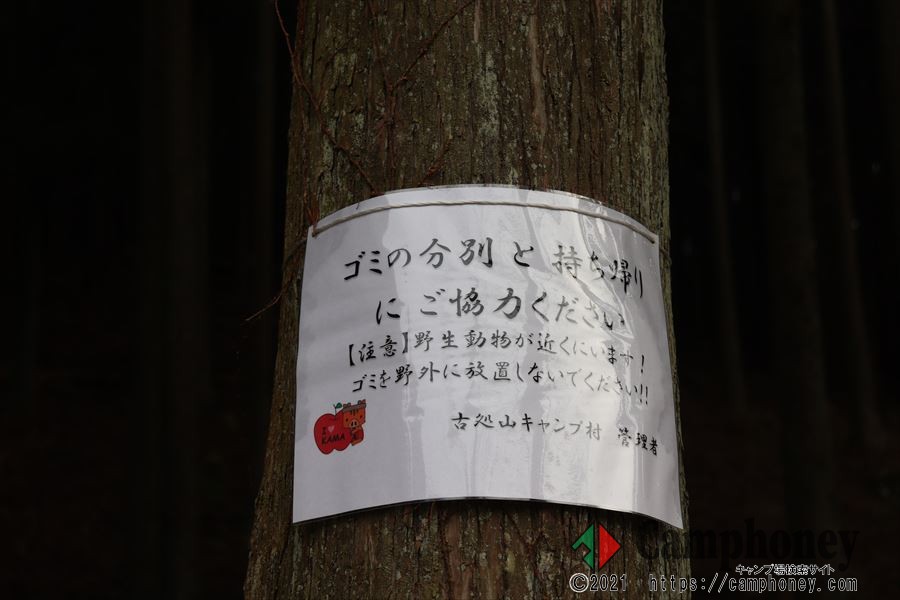 ゴミの分別と持ち帰り
にご協力ください
【注意】野生動物が近くにいます!
ゴミを野外に放置しないでください!!
古処山キャンプ村 管理者
I♥
KAMA
Camphoney
キャンプ場検索サイト
©2021 https://camphoney.com